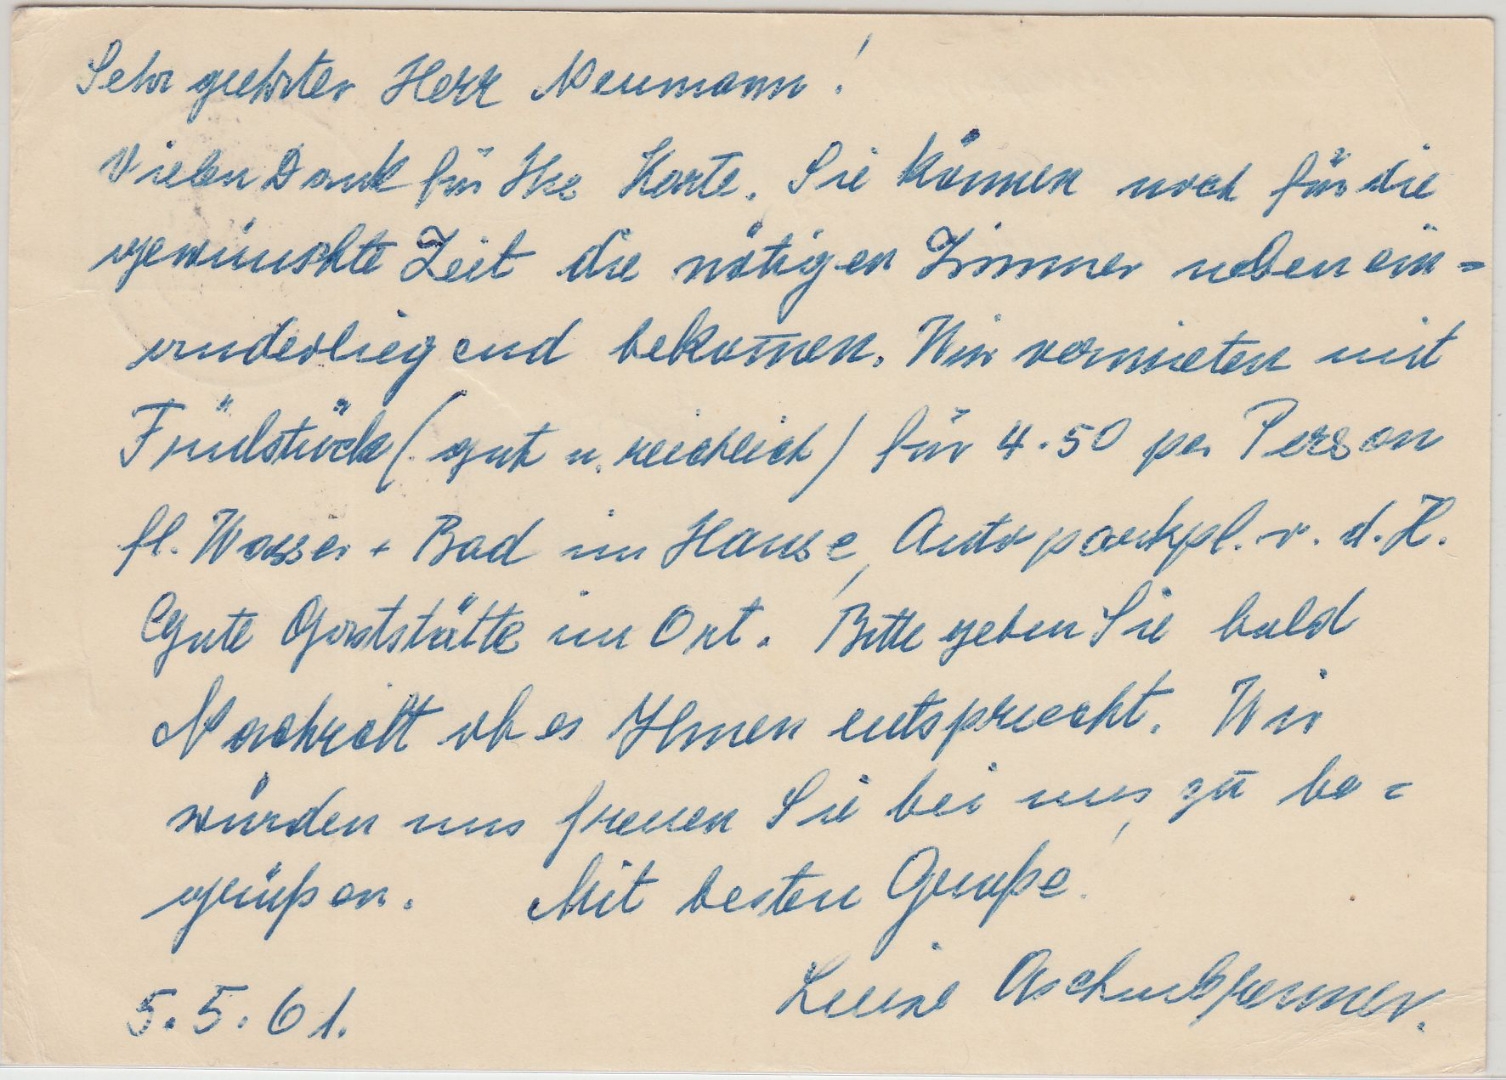 Sehr geehrter Herr Neumann!
Vielen Dank für Ihre Karte. Sie können noch für die
gewünschte Zeit die nötigen Zimmer nebenein=
anderliegend bekom̅en. Wir vermieten mit
Frühstück (gut u. reichlich) für 4.50 per Person
fl. Wasser + Bad im Hause, Autoparkpl. v. d. H.
Gute Gaststätte im Ort. Bitte geben Sie bald
Nachricht ob es Ihnen entspricht. Wir
würden uns freuen Sie bei uns, zu be=
grüßen. Mit besten Gruße!
Luise
5.5.61.